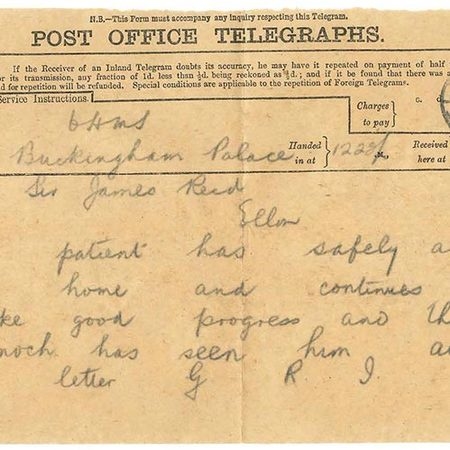 N.B.—This Form must accompany any inquiry respecting this Telegram.
POST OFFICE TELEGRAPHS.
If the Receiver of an Inland Telegram doubts its accuracy, he may have it repeated on payment of half
for its transmission, any fraction of 1d. less than ½d. being reckoned as ½d.; and if it be found that there was a
d for repetition will be refunded. Special conditions are applicable to the repetition of Foreign Telegrams.
Service Instructions.
Charges to pay
s. d.
OHMS
Buckingham Palace
Handed in at
Received here at
Sir James Reid
Ellon
patient has safely a
home and continues
ke good progress and th
noch has seen him a
letter G R I.